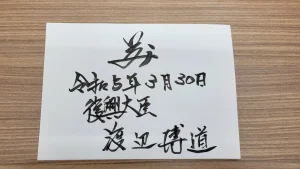 令和5年3月30日
復興大臣
渡辺博道